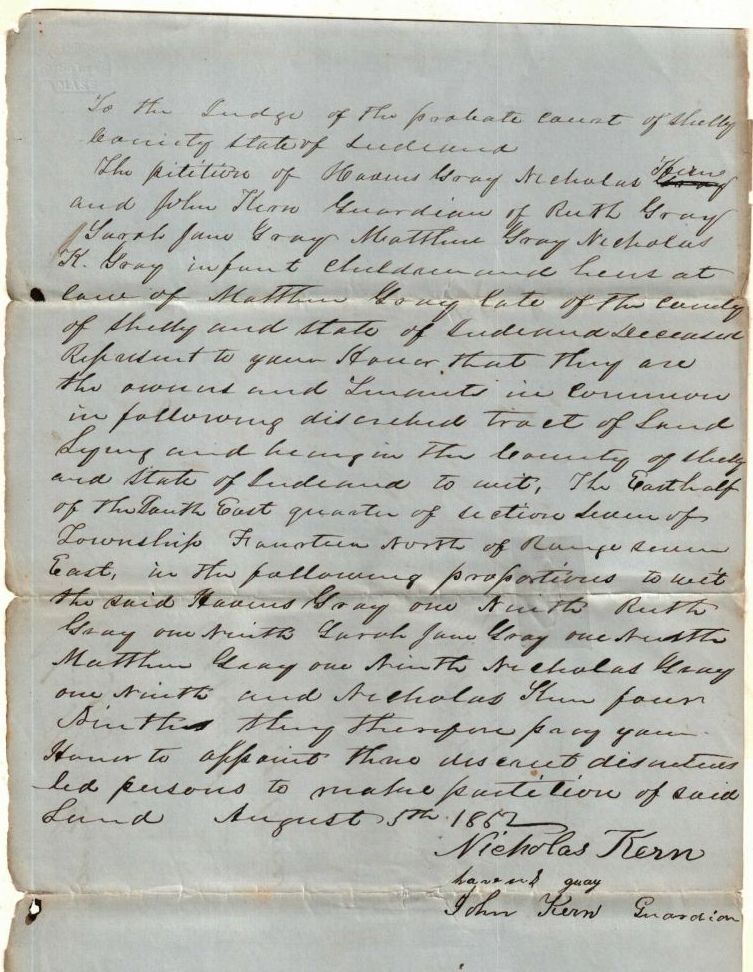 To the Judge of the probate court of Shelby
County State of Indiana
The pitition of Havens Gray Nicholas Kern
and John Kern Guardian of Ruth Gray
Sarah Jane Gray Matthew Gray Nicholas
K. Gray infant children and heirs at
law of Matthew Gray late of the County
of Shelby and State of Indiana Deceased
Represent to your Honor that they are
the owners and Tenants in common
in following discribed tract of Land
Lying and being in the County of Shelby
and State of Indiana to wit, The East half
of the South East quarter of section Seven of
Township Fourteen North of Range seven
East, in the following proportions to wit
the said Havens Gray one Ninth Ruth
Gray one Ninth Sarah Jane Gray one Ninth
Matthew Gray one Ninth Nicholas Gray
one Ninth and Nicholas Kern four
Ninths they therefore pray your
Honor to appoint three discreet
persons to make partition of said
Land August 5th 1852
Nicholas Kern
havens gray
John Kern Guardian